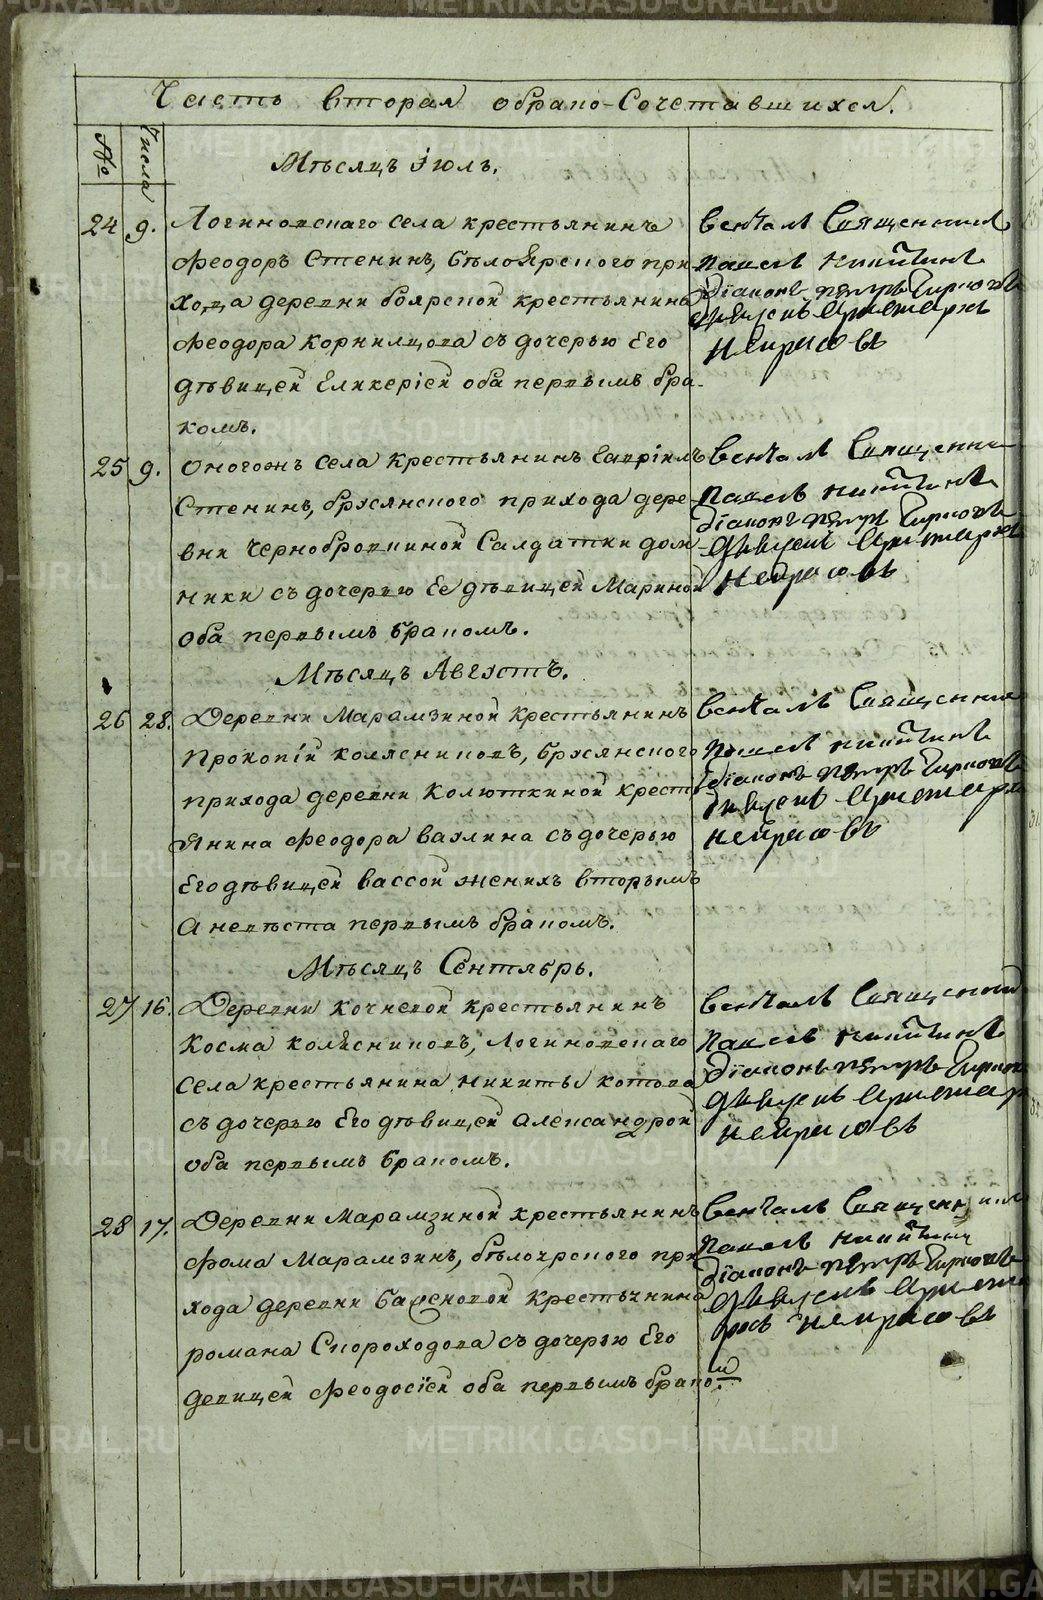 METRIKI.GASO-URAL.RU
Часть вторая обрако-Сочетавшихся.
№ Числа
Мѣсяцъ іюль.
24 9. Логиновскаго села крестьянинъ
феодоръ Стенинъ, бѣлоярского при
хода деревни боярской крестьянина
феодора корнильцова съ дочерью Его
дѣвицей Гликеріей оба первымъ бра-
комъ.
Венчалъ Священник
Павелъ никитинъ
діаконъ петръ
некрасовъ
25 9. Оногожъ села крестьянинъ Гавріилъ
Стенинъ, брусянского прихода дере
вни Чернобровкиной Салдатки дом
ники съ дочерью Ее дѣвицей Мариной
оба первымъ бракомъ.
Венчалъ Священни
Павелъ никитинъ
діаконъ петръ
некрасовъ
Мѣсяцъ Августъ.
26 28. Деревни Марамзиной крестьянинъ
Прокопій колясниковъ, брусянского
прихода деревни Колюткиной кресть
янина феодора ваулина съ дочерью
Его дѣвицей вассой женихъ вторымъ
а невѣста первымъ бракомъ.
Венчалъ Священник
Павелъ никитинъ
діаконъ петръ
некрасовъ
Мѣсяцъ Сентябрь.
27 16. Деревни кочневой крестьянинъ
Косма колясниковъ, Логиновскаго
села крестьянина никиты котова
съ дочерью Его дѣвицей александрой
оба первымъ бракомъ.
Венчалъ Священник
Павелъ никитинъ
діаконъ петръ
некрасовъ
28 17. Деревни Марамзиной крестьянинъ
фома Марамзинъ, бѣлоярского при
хода деревни крестьянина
романа Скороходова съ дочерью Его
девицей феодосіей оба первымъ бракомъ
Венчалъ Священник
Павелъ никитинъ
діаконъ петръ
некрасовъ